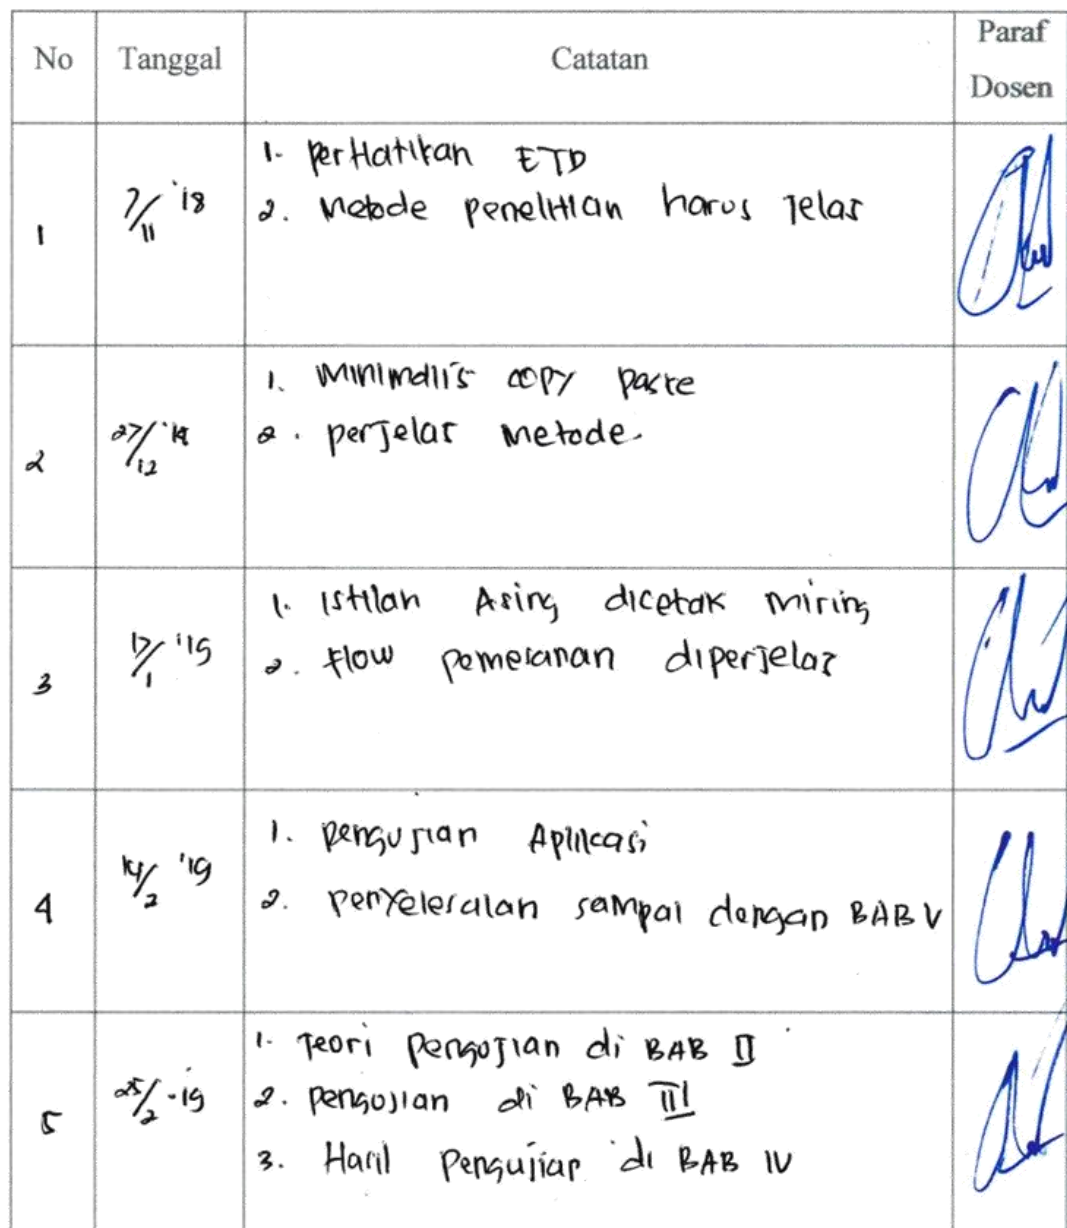 No Tanggal Catatan Paraf Dosen
1 7/11 '18
1. Perhatikan ETD
2. Metode penelitian harus jelas
2 27/12 '18
1. Minimalis copy paste
2. perjelas metode.
3 17/1 '19
1. Istilah Asing dicetak miring
2. flow pemesanan diperjelas
4 14/2 '19
1. pengujian Aplikasi
2. penyelesaian sampai dengan BAB V
5 25/2 -19
1. Teori pengujian di BAB II
2. pengujian di BAB III
3. Hasil Pengujian di BAB IV